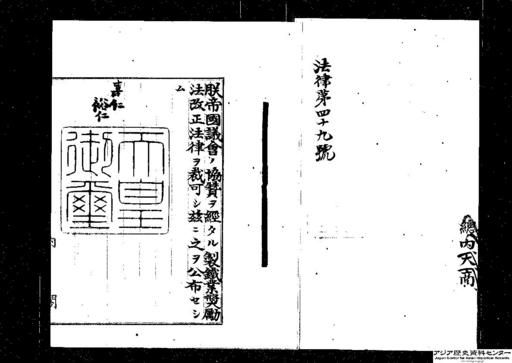 法律第四十九號
總内大商
朕帝國議會ノ協賛ヲ經タル製鐵業奬勵
法改正法律ヲ裁可シ茲ニ之ヲ公布セシ
ム
嘉仁
裕仁
天皇
御璽
内閣
アジア歴史資料センター
Japan Center for Asian Historical Records